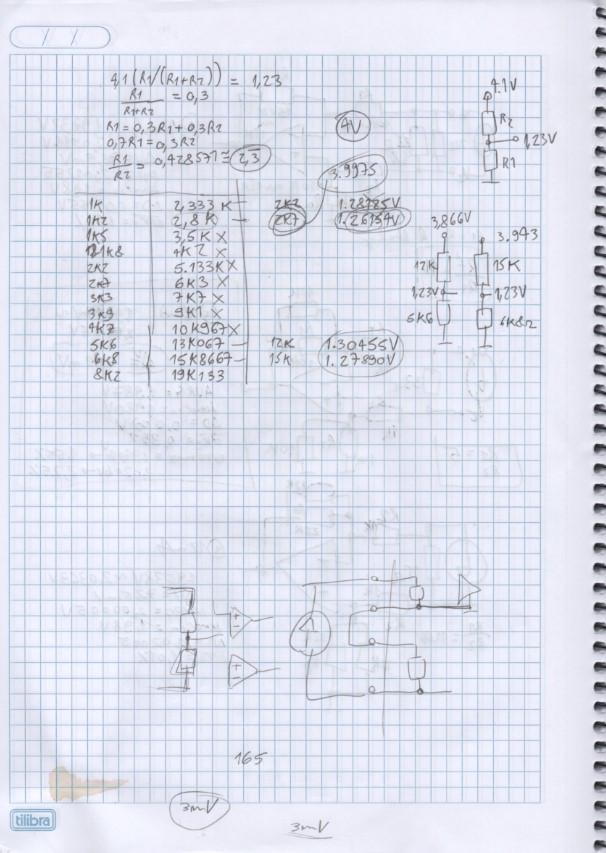 4,1(R1/(R1+R2)) = 1,23
R1/R1+R2 = 0,3
R1=0,3R1+0,3R2
0,7R1=0,3R2
R1/R2 = 0,428571 = 2,3
4V
3.9975
4.1V
R2
1,23V
R1
1K 2,333K 2K2 1.28125V
1K2 2,8K 2K7 1.26154V
1K5 3,5K X
1K8 4K2 X
2K2 5.133K X
2K7 6K3 X
3K3 7K7 X
3K9 9K1 X
4K7 10K967 X
5K6 13K067 12K 1.30455V
6K8 15K8667 15K 1.27890V
8K2 19K133
3,866V
12K
1,23V
5K6
3.943
15K
1,23V
6K8Ω
165
3mV
3mV
tilibra